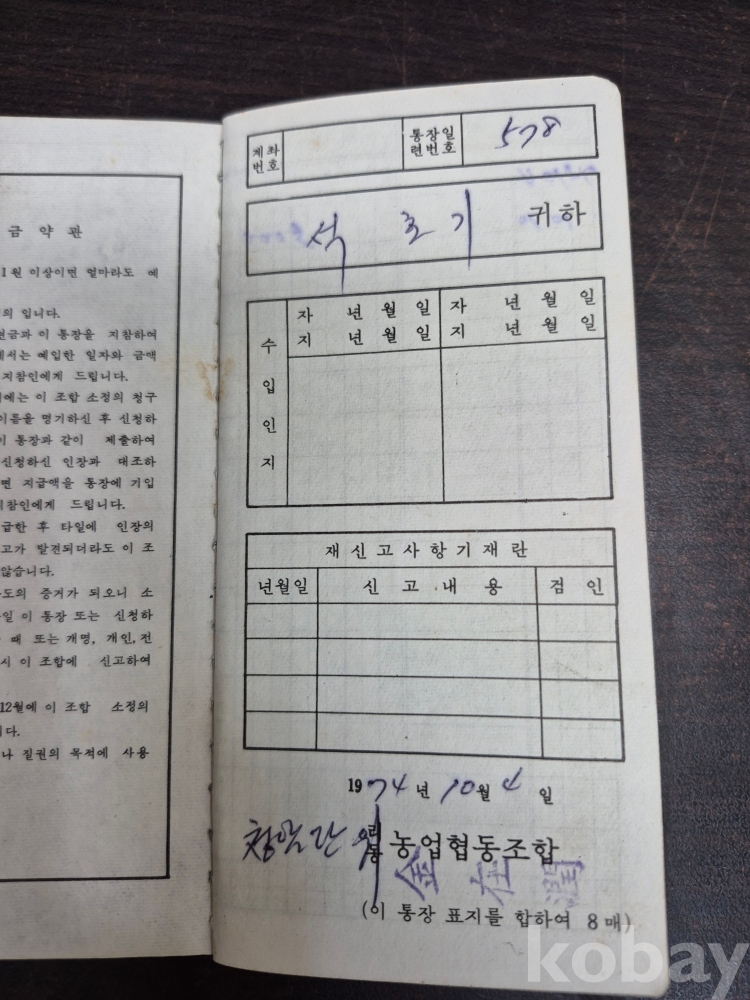 금 약 관
1원 이상이면 얼마라도 예
의 입니다.
현금과 이 통장을 지참하여
에서는 예입한 일자와 금액
지참인에게 드립니다.
에는 이 조합 소정의 청구
이름을 명기하신 후 신청하
이 통장과 같이 제출하여
신청하신 인장과 대조하
면 지급액을 통장에 기입
지참인에게 드립니다.
급한 후 타일에 인장의
고가 발견되더라도 이 조
않습니다.
도의 증거가 되오니 소
일 이 통장 또는 신청하
때 또는 개명, 개인, 전
시 이 조합에 신고하여
12월에 이 조합 소정의
다.
나 질권의 목적에 사용
계좌번호 통장일련번호 578
석 호 기 귀하
수입인지
자 년 월 일 자 년 월 일
지 년 월 일 지 년 월 일
재신고사항기재란
년월일 신고내용 검인
1974년 10월 4일
리동 농업협동조합
金 在 潤
(이 통장 표지를 합하여 8매)
kobay